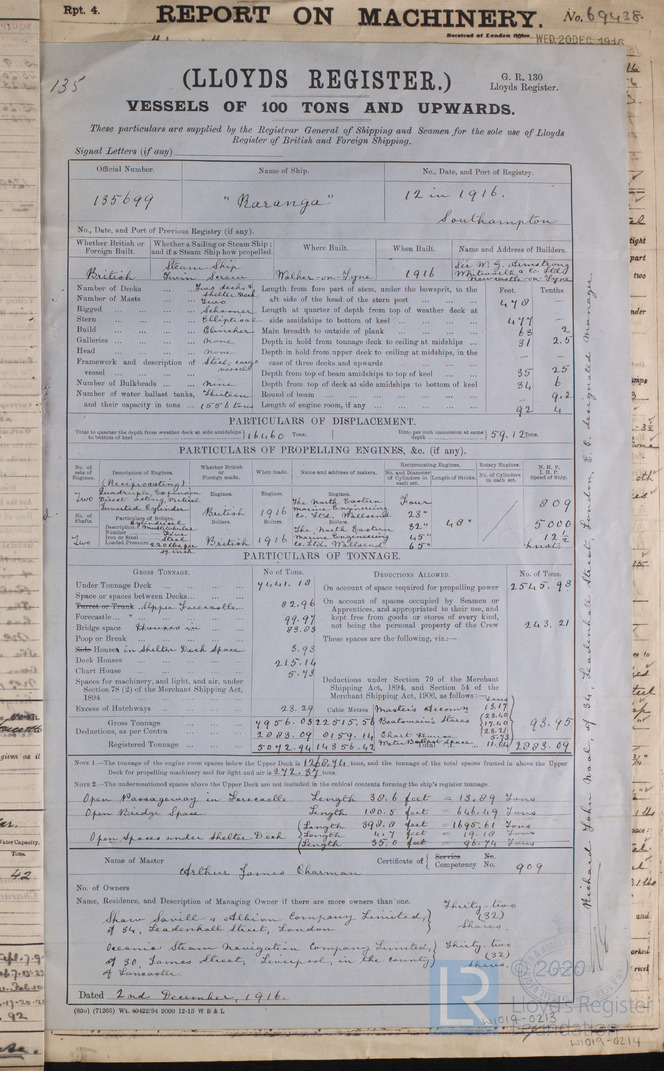 Rpt. 4.
REPORT ON MACHINERY.
No. 69438.
Received at London Office WED. 20 DEC 1916
135
(LLOYDS REGISTER.)
G. R. 130
Lloyds Register.
VESSELS OF 100 TONS AND UPWARDS.
These particulars are supplied by the Registrar General of Shipping and Seamen for the sole use of Lloyds
Register of British and Foreign Shipping.
Signal Letters (if any)
Official Number. Name of Ship. No., Date, and Port of Registry.
135699 "Raranga" 12 in 1916.
Southampton
No., Date, and Port of Previous Registry (if any).
Whether British or Foreign Built. Whether a Sailing or Steam Ship; and if a Steam Ship how propelled. Where Built. When Built. Name and Address of Builders.
British Steam Ship Twin Screw Walker-on-Tyne 1916 Sir W. G. Armstrong Whitworth & Co. Ltd. Newcastle-on-Tyne
Number of Decks Two decks & Shelter Deck
Number of Masts Two
Rigged Schooner
Stern Elliptical
Build Clencher
Galleries None
Head None
Framework and description of vessel Steel, cargo vessel
Number of Bulkheads Nine
Number of water ballast tanks, Thirteen
and their capacity in tons 1556 tons
Feet. Tenths.
Length from fore part of stem, under the bowsprit, to the aft side of the head of the stern post 478
Length at quarter of depth from top of weather deck at side amidships to bottom of keel 477
Main breadth to outside of plank 63 2
Depth in hold from tonnage deck to ceiling at midships 31 2.5
Depth in hold from upper deck to ceiling at midships, in the case of three decks and upwards
Depth from top of beam amidships to top of keel 35 25
Depth from top of deck at side amidships to bottom of keel 34 6
Round of beam 9.2
Length of engine room, if any 92 4
PARTICULARS OF DISPLACEMENT.
Total to quarter the depth from weather deck at side amidships to bottom of keel 16460 Tons. Ditto per inch immersion at same depth 59.12 Tons.
PARTICULARS OF PROPELLING ENGINES, &c. (if any).
No. of sets of Engines. Description of Engines. Whether British or Foreign made. When made. Name and address of makers. Reciprocating Engines. No. and Diameter of Cylinders in each set. Length of Stroke. Rotary Engines. No. of Cylinders in each set. N. H. P. I. H. P. Speed of Ship.
Two (Reciprocating) Quadruple Expansion Direct Acting, Vertical Inverted Cylinder
Engines. British Engines. 1916 Engines. The North Eastern Marine Engineering Co. Ltd, Wallsend
Four 23" 32" 45" 65" 48" 809 5000 12½ knots
No. of Shafts. Two
Particulars of Boilers.
Description Cylindrical Multitubular
Number Five
Iron or Steel Steel
Loaded Pressure 220 lbs per sq. inch
Boilers. British Boilers. 1916 Boilers The North Eastern Marine Engineering Co. Ltd, Wallsend
PARTICULARS OF TONNAGE.
GROSS TONNAGE. No of Tons.
Under Tonnage Deck 7441.18
Space or spaces between Decks
Turret or Trunk Upper Forecastle 82.96
Forecastle " 99.97
Bridge space Houses in 83.83
Poop or Break
Side Houses in Shelter Deck Space 3.93
Deck Houses 215.14
Chart House 5.73
Spaces for machinery, and light, and air, under
Section 78 (2) of the Merchant Shipping Act,
1894
Excess of Hatchways 23.29
Cubic Metres
Gross Tonnage 7956.03 22515.56
Deductions, as per Contra 2883.09 8159.14
Registered Tonnage 5072.94 14356.42
DEDUCTIONS ALLOWED. No. of Tons.
On account of space required for propelling power 2545.93
On account of spaces occupied by Seamen or
Apprentices, and appropriated to their use, and
kept free from goods or stores of every kind,
not being the personal property of the Crew 243.21
These spaces are the following, viz.:—
Deductions under Section 79 of the Merchant
Shipping Act, 1894, and Section 54 of the
Merchant Shipping Act, 1906, as follows:— Tons
Master's Accomn 13.17
Boatswain's Stores
Chart House 5.73
Water Ballast Space 11.04
93.95
Total 2883.09
NOTE 1.—The tonnage of the engine room spaces below the Upper Deck is 1268.74 tons, and the tonnage of the total spaces framed in above the Upper
Deck for propelling machinery and for light and air is 272.37 tons.
NOTE 2.—The undermentioned spaces above the Upper Deck are not included in the cubical contents forming the ship's register tonnage.
Open Passageway in Forecastle Length 38.6 feet = 13.89 Tons
Open Bridge Space Length 180.5 feet = 646.49 Tons
Open Spaces under Shelter Deck
Length 398.8 feet = 1695.61 Tons
Length 4.7 feet = 19.18 Tons
Length 35.0 feet = 96.74 Tons
Name of Master Arthur James Charman
Certificate of Service No. Competency No. 909
No. of Owners
Name, Residence, and Description of Managing Owner if there are more owners than one.
Shaw Savill & Albion Company Limited, of 34, Leadenhall Street, London Thirty-two (32) Shares.
Oceanic Steam Navigation Company Limited, of 30, James Street, Liverpool, in the County of Lancaster. Thirty-two (32) Shares.
Dated 2nd December, 1916.
(83o) (71265) Wt. 40422/94 2000 12-15 W B & L
of 34, Leadenhall Street, London, E.C. designated Manager.
© 2020
Lloyd's Register
Foundation
LR
W1019-0213
W1019-0214
Water Capacity.
Tons.
42